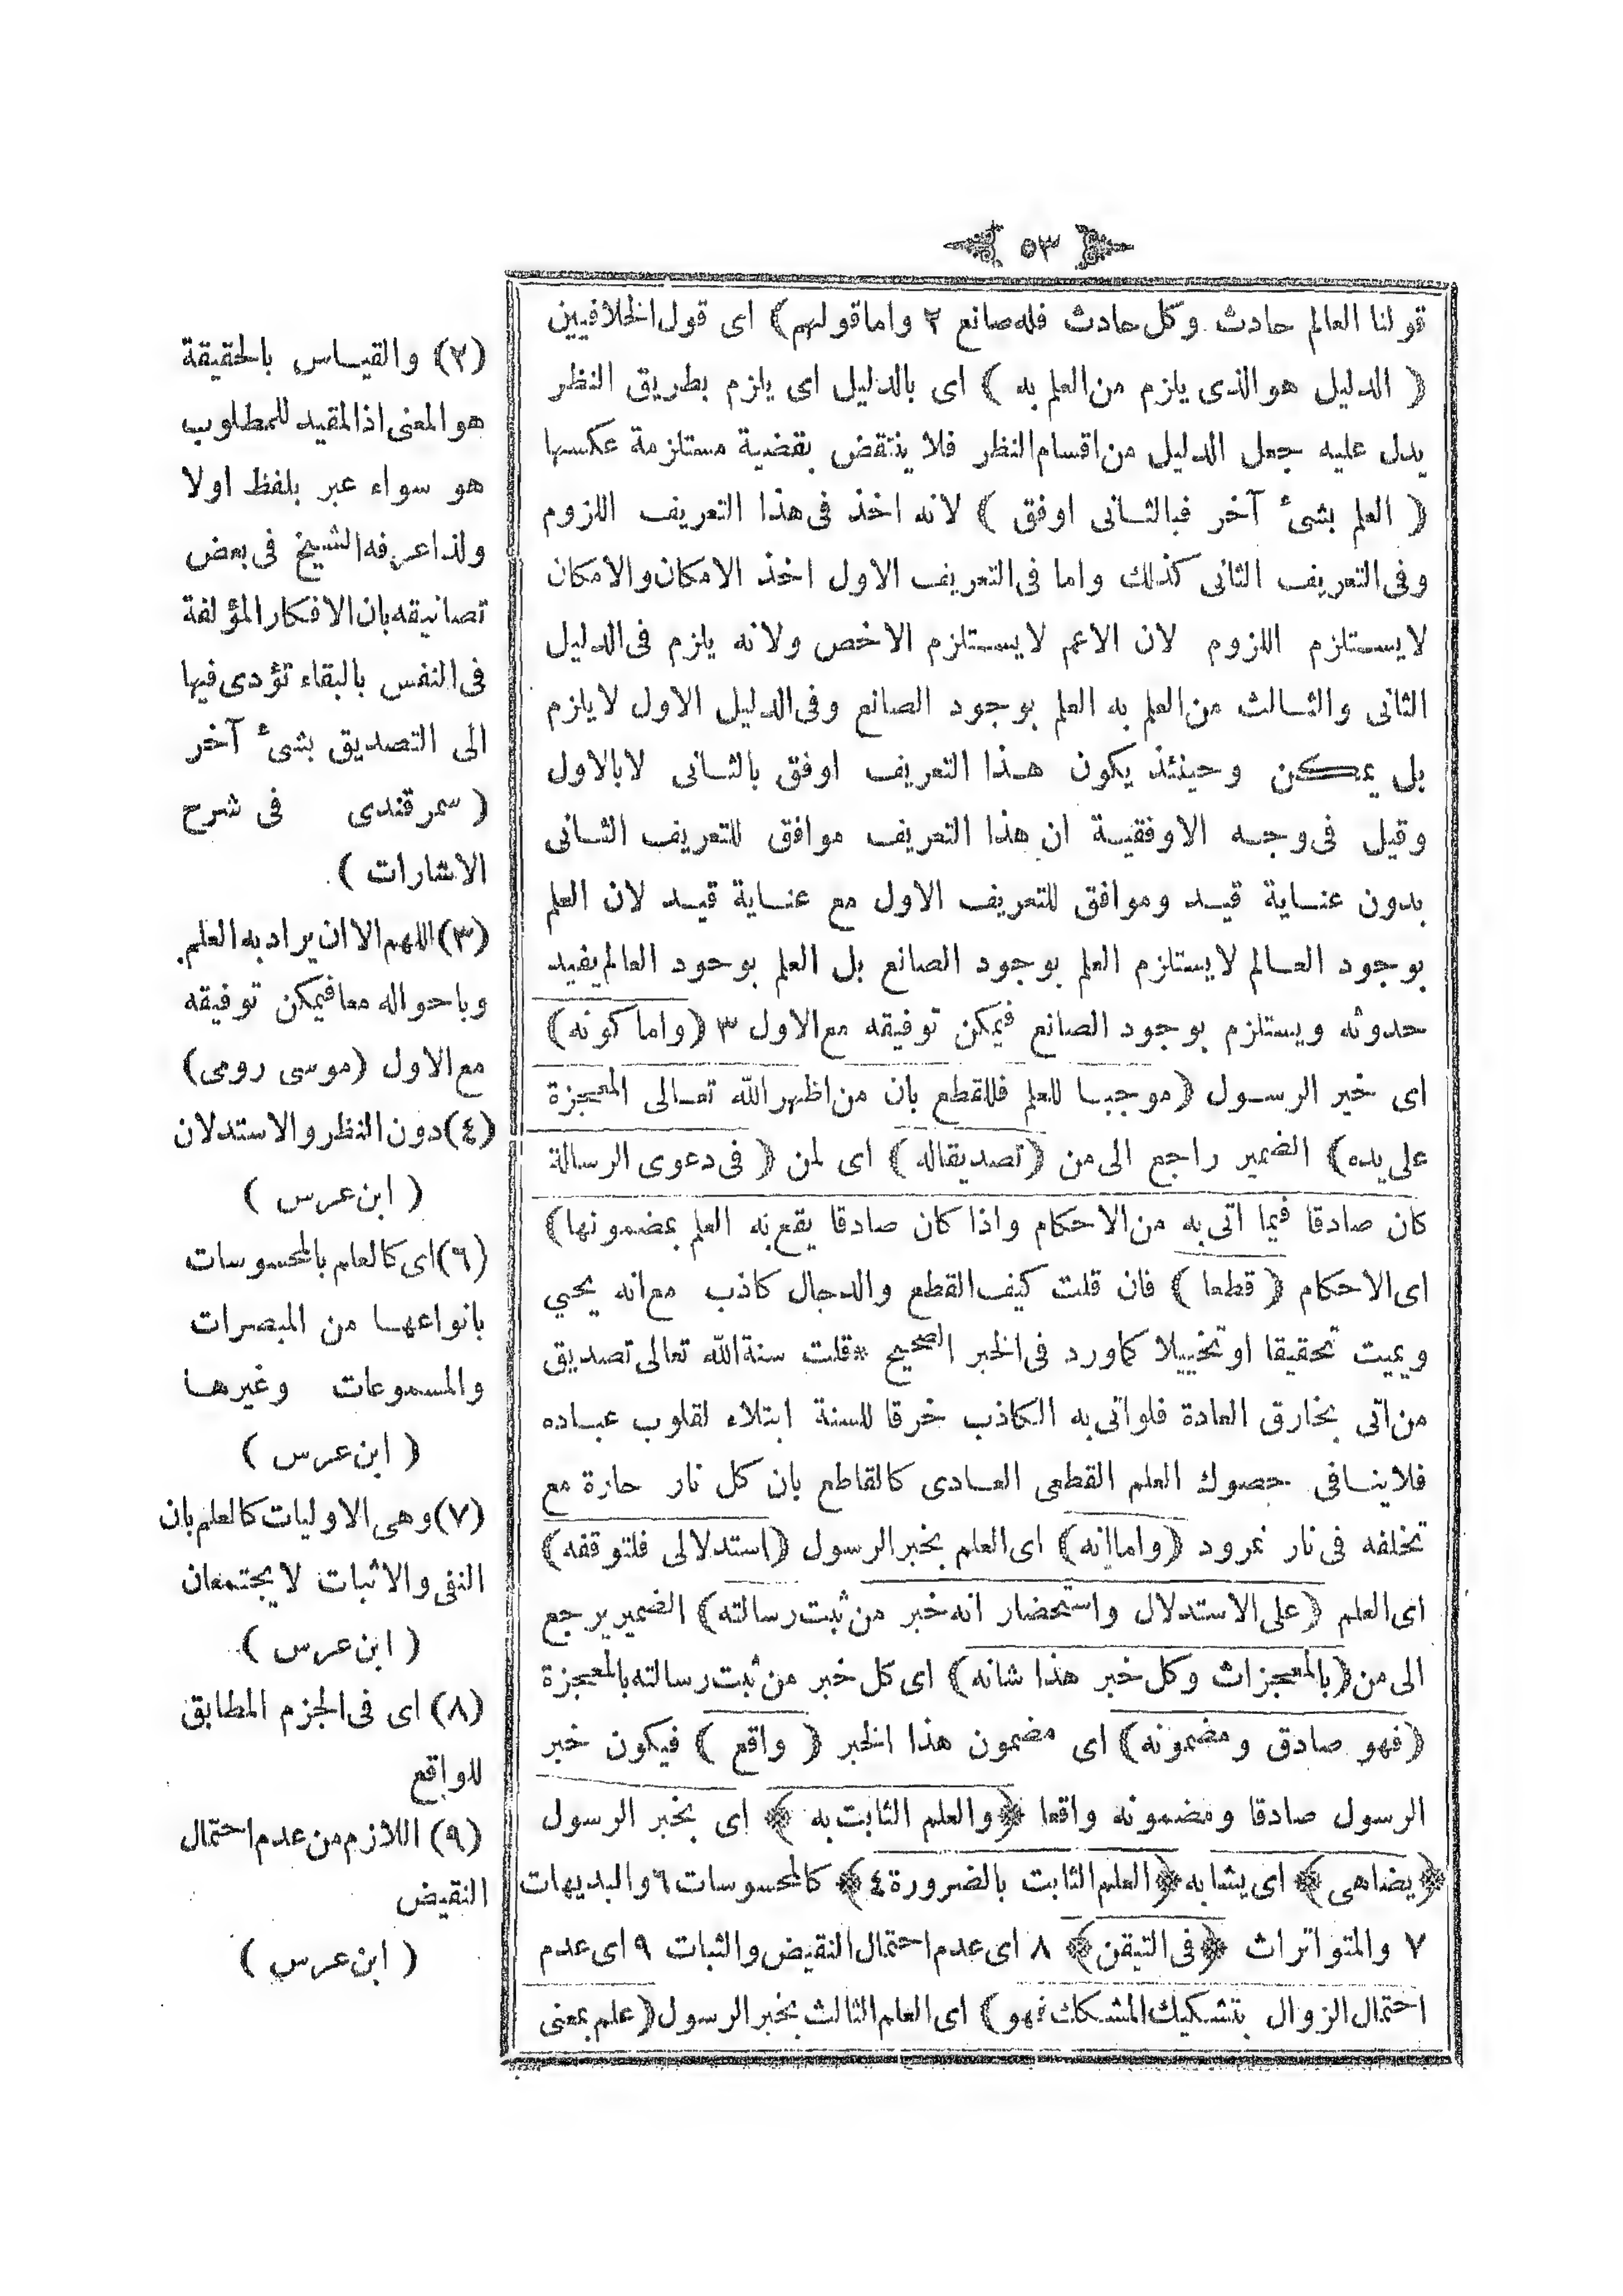 ٥٣
قولنا العالم حادث وكل حادث فله صانع ٢ واما قولهم) اى قول الخلافيين
( الدليل هو الذى يلزم من العلم به ) اى بالدليل اى يلزم بطريق النظر
يدل عليه جعل الدليل من اقسام النظر فلا ينتقض بقضية مستلزمة عكسها
( العلم بشئ آخر فبالثانى اوفق ) لانه اخذ فى هذا التعريف اللزوم
وفى التعريف الثانى كذلك واما فى التعريف الاول اخذ الامكان والامكان
لايستلزم اللزوم لان الاعم لايستلزم الاخص ولانه يلزم فى الدليل
الثانى والثالث من العلم به العلم بوجود الصانع وفى الدليل الاول لايلزم
بل يمكن وحينئذ يكون هذا التعريف اوفق بالثانى لابالاول
وقيل فى وجه الاوفقية ان هذا التعريف موافق للتعريف الثانى
بدون عناية قيد وموافق للتعريف الاول مع عناية قيد لان العلم
بوجود العالم لايستلزم العلم بوجود الصانع بل العلم بوحود العالم يفيد
حدوثه ويستلزم بوجود الصانع فيمكن توفيقه مع الاول ٣ (واما كونه)
اى خبر الرسول (موجبا للعلم فللقطع بان من اظهر الله تعالى المعجزة
على يده) الضمير راجع الى من (تصديقاله) اى لمن ( فى دعوى الرسالة
كان صادقا فيما اتى به من الاحكام واذا كان صادقا يقع نه العلم بمضمونها)
اى الاحكام ( قطعا ) فان قلت كيف القطع والدجال كاذب مع انه يحيي
ويميت تحقيقا او تخييلا كما ورد فى الخبر الصحيح *قلت سنة الله تعالى تصديق
من اتى بخارق العادة فلو اتى به الكاذب خرقا للسنة ابتلاء لقلوب عباده
فلاينافى حصول العلم القطعى العادى كالقاطع بان كل نار حارة مع
تخلفه فى نار نمرود (واما انه) اى العلم بخبر الرسول (استدلالى فلتوقفه)
اى العلم (على الاستدلال واستحضار انه خبر من ثبت رسالته) الضمير يرجع
الى من (بالمعجزات وكل خبر هذا شانه) اى كل خبر من ثبت رسالته بالمعجزة
(فهو صادق ومضمونه) اى مضمون هذا الخبر ( واقع ) فيكون خبر
الرسول صادقا ومضمونه واقعا ﴿والعلم الثابت به ﴾ اى بخبر الرسول
﴿يضاهى﴾ اى يشابه ﴿العلم الثابت بالضرورة ٤﴾ كالمحسوسات ٦ والبديهات
٧ والمتواترات ﴿فى التيقن﴾ ٨ اى عدم احتمال النقيض والثبات ٩ اى عدم
احتمال الزوال بتشكيك المشكك فهو) اى العلم الثالث بخبر الرسول (علم بمعنى
(٢) والقياس بالحقيقة
هو المعنى اذ المقيد للمطلوب
هو سواء عبر بلفظ اولا
ولذا عرفه الشيخ فى بعض
تصانيقه بان الافكار المؤلفة
فى النفس بالبقاء تؤدى فيها
الى التصديق بشئ آخر
( سمرقندى فى شرح
الاشارات ).
(٣) اللهم الا ان يراد به العلم.
وباحواله معا فيمكن توفيقه
مع الاول (موسى رومى)
(٤) دون النظر والاستدلان
( ابن عرس )
(٦) اى كالعلم بالمحسوسات
بانواعها من المبصرات
والمسموعات وغيرها
( ابن عرس )
(٧) وهى الاوليات كالعلم بان
النفى والاثبات لا يجتمعان
( ابن عرس )
(٨) اى فى الجزم المطابق
للواقع
(٩) اللازم من عدم احتمال
النقيض
( ابن عرس )